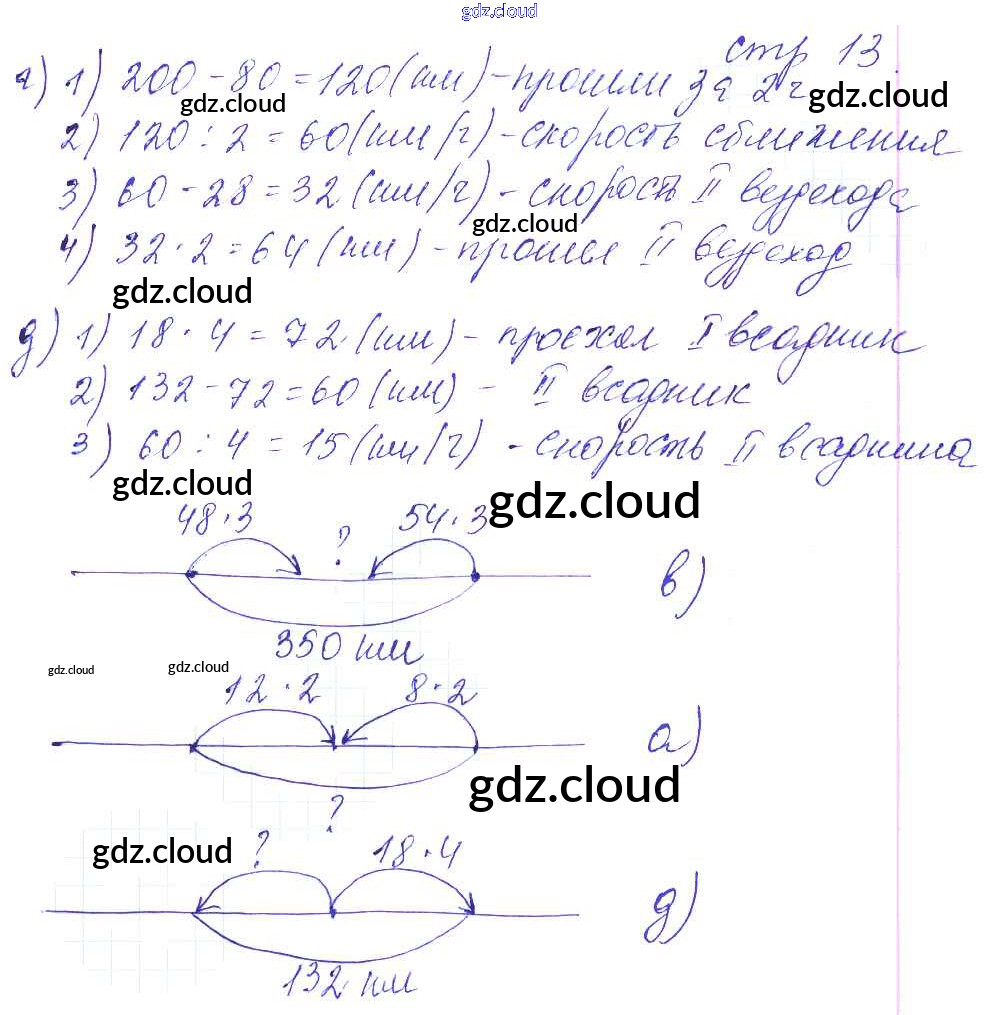 gdz.cloud
стр 13.
г) 1) 200 - 80 = 120 (км) - прошли за 2 г
gdz.cloud gdz.cloud
2) 120 : 2 = 60 (км/г) - скорость сближения
3) 60 - 28 = 32 (км/г) - скорость II вездехода
gdz.cloud
4) 32 · 2 = 64 (км) - прошел II вездеход
gdz.cloud
д) 1) 18 · 4 = 72 (км) - проехал I всадник
2) 132 - 72 = 60 (км) - II всадник
3) 60 : 4 = 15 (км/г) - скорость II всадника
gdz.cloud gdz.cloud
48·3 ? 54·3
в)
350 км
gdz.cloud gdz.cloud
12·2 8·2
а)
gdz.cloud
?
gdz.cloud ? 18·4
д)
132 км